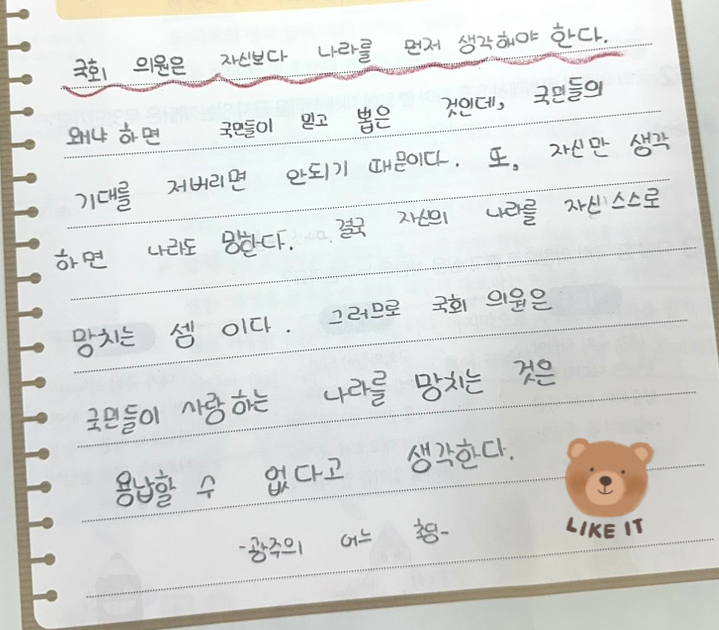 국회 의원은 자신보다 나라를 먼저 생각해야 한다.
왜냐 하면 국민들이 믿고 뽑은 것인데, 국민들의
기대를 저버리면 안되기 때문이다. 또, 자신만 생각
하면 나라도 망한다. 결국 자신의 나라를 자신 스스로
망치는 셈 이다. 그러므로 국회 의원은
국민들이 사랑하는 나라를 망치는 것은
용납할 수 없다고 생각한다.
-광주의 어느 초딩-
LIKE IT